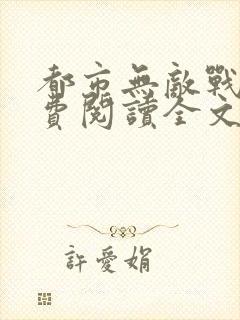 都市無敵戰
費閱讀全文
許愛娟